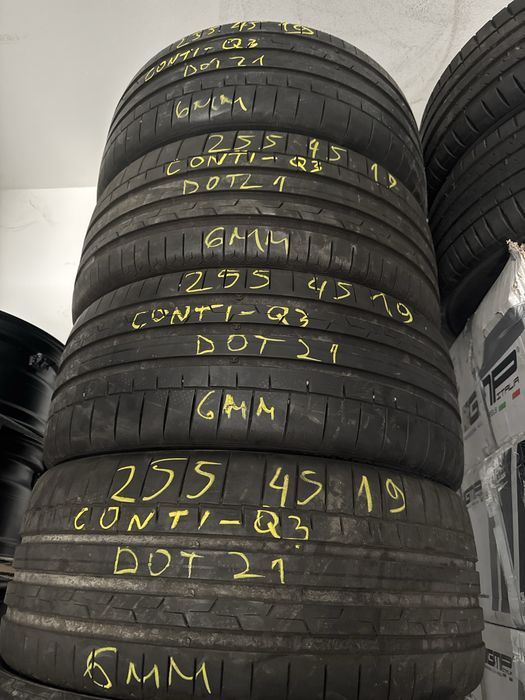 255 45 19
CONTI-Q3
DOT 21
6MM
255 45 19
CONTI-Q3
DOT21
6MM
255 45 19
CONTI-Q3
DOT 21
6MM
255 45 19
CONTI-Q3
DOT 21
6MM
ITALA